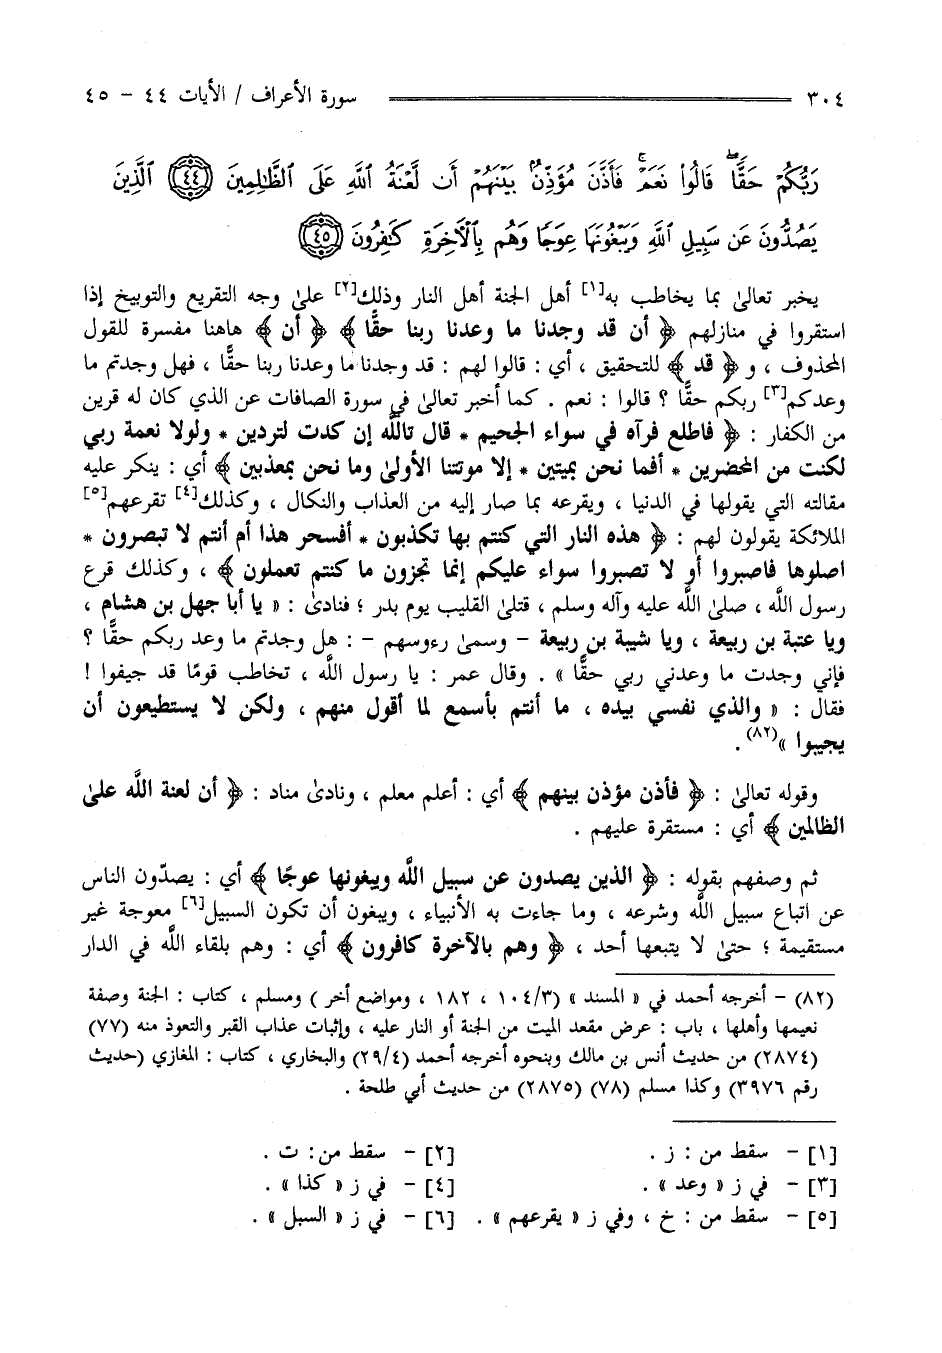 ٣٠٤ سورة الأعراف / الأيات ٤٤ - ٤٥
رَبُّكُمْ حَقًّا ۖ قَالُوا۟ نَعَمْ ۚ فَأَذَّنَ مُؤَذِّنٌۢ بَيْنَهُمْ أَن لَّعْنَةُ ٱللَّهِ عَلَى ٱلظَّـٰلِمِينَ ٤٤ ٱلَّذِينَ
يَصُدُّونَ عَن سَبِيلِ ٱللَّهِ وَيَبْغُونَهَا عِوَجًا وَهُم بِٱلْـَٔاخِرَةِ كَـٰفِرُونَ ٤٥
يخبر تعالىٰ بما يخاطب به[١] أهل الجنة أهل النار وذلك[٢] علىٰ وجه التقريع والتوبيخ إذا
استقروا في منازلهم ﴿ أن قد وجدنا ما وعدنا ربنا حقًّا ﴾ ﴿ أن ﴾ هاهنا مفسرة للقول
المحذوف ، و ﴿ قد ﴾ للتحقيق ، أي : قالوا لهم : قد وجدنا ما وعدنا ربنا حقًّا ، فهل وجدتم ما
وعدكم[٣] ربكم حقًّا ؟ قالوا : نعم . كما أخبر تعالىٰ في سورة الصافات عن الذي كان له قرين
من الكفار : ﴿ فاطلع فرآه في سواء الجحيم * قال تاللَّه إن كدت لتردين * ولولا نعمة ربي
لكنت من المحضرين * أفما نحن بميتين * إلا موتتنا الأولىٰ وما نحن بمعذبين ﴾ أي : ينكر عليه
مقالته التي يقولها في الدنيا ، ويقرعه بما صار إليه من العذاب والنكال ، وكذلك[٤] تقرعهم[٥]
الملائكة يقولون لهم : ﴿ هذه النار التي كنتم بها تكذبون * أفسحر هذا أم أنتم لا تبصرون *
اصلوها فاصبروا أو لا تصبروا سواء عليكم إنما تجزون ما كنتم تعملون ﴾ ، وكذلك قرع
رسول اللَّه ، صلىٰ اللَّه عليه وآله وسلم ، قتلىٰ القليب يوم بدر ؛ فنادىٰ : « يا أبا جهل بن هشام ،
ويا عتبة بن ربيعة ، ويا شيبة بن ربيعة - وسمىٰ رءوسهم - : هل وجدتم ما وعد ربكم حقًّا ؟
فإني وجدت ما وعدني ربي حقًّا » . وقال عمر : يا رسول اللَّه ، تخاطب قومًا قد جيفوا !
فقال : « والذي نفسي بيده ، ما أنتم بأسمع لما أقول منهم ، ولكن لا يستطيعون أن
يجيبوا »(٨٢) .
وقوله تعالىٰ : ﴿ فأذن مؤذن بينهم ﴾ أي : أعلم معلم ، ونادىٰ مناد : ﴿ أن لعنة اللَّه علىٰ
الظالمين ﴾ أي : مستقرة عليهم .
ثم وصفهم بقوله : ﴿ الذين يصدون عن سبيل اللَّه ويبغونها عوجًا ﴾ أي : يصدّون الناس
عن اتباع سبيل اللَّه وشرعه ، وما جاءت به الأنبياء ، ويبغون أن تكون السبيل[٦] معوجة غير
مستقيمة ؛ حتىٰ لا يتبعها أحد ، ﴿ وهم بالآخرة كافرون ﴾ أي : وهم بلقاء اللَّه في الدار
(٨٢) - أخرجه أحمد في « المسند » (١٠٤/٣ ، ١٨٢ ، ومواضع أخر ) ومسلم ، كتاب : الجنة وصفة
نعيمها وأهلها ، باب : عرض مقعد الميت من الجنة أو النار عليه ، وإثبات عذاب القبر والتعوذ منه (٧٧)
(٢٨٧٤) من حديث أنس بن مالك وبنحوه أخرجه أحمد (٢٩/٤) والبخاري ، كتاب : المغازي (حديث
رقم ٣٩٧٦) وكذا مسلم (٧٨) (٢٨٧٥) من حديث أبي طلحة .
[١] - سقط من : ز . [٢] - سقط من: ت .
[٣] - في ز « وعد » . [٤] - في ز « كذا » .
[٥] - سقط من : خ ، وفي ز « يقرعهم » . [٦] - في ز « السبل » .